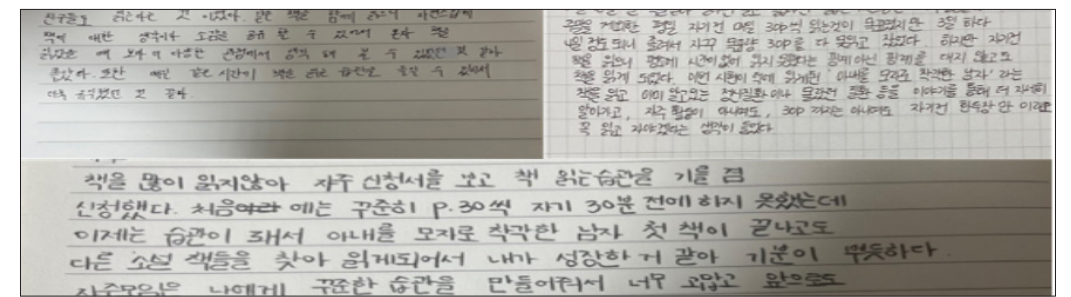 친구들도 읽는다는 것 이었다. 같은 책을 함께 읽으며 자연스럽게
책에 대한 생각이나 소감을 공유 할 수 있어서 혼자 책을
읽었을 때 보다 더 다양한 관점에서 생각 해 볼 수 있었던 것 같아
좋았다. 또한 매일 같은 시간에 책을 읽는 습관을 들일 수 있어서
더욱 유익했던 것 같다.
주말을 제외한 평일 자기전 매일 30p씩 읽는것이 목표였지만 3일 하다
4일 정도 되니 졸려서 자꾸 분량 30p를 다 못읽고 잤었다. 하지만 자기전
책을 읽으니 평소에 시간이없어 읽지 못했다는 핑계아닌 핑계를 대지 않고도
책을 읽게 되었다. 이번 시행에 읽게된 '아내를 모자로 착각한 남자' 라는
책을 읽고 이미 알고있는 정신질환 이나 몰랐던 질환 등을 이야기를 통해 더 자세히
알아가고, 자주 활동이 아니여도, 30p 까지는 아니여도 자기전 한두장 만 이라도
꼭 읽고 자야겠다는 생각이 들었다
책을 많이 읽지않아 자주 신청서를 보고 책 읽는습관을 기를 겸
신청했다. 처음에는 꾸준히 p.30씩 자기 30분 전에 하지 못했는데
이제는 습관이 돼서 아내를 모자로 착각한 남자 첫 책이 끝나고도
다른 소설 책들을 찾아 읽게되어서 내가 성장한 거 같아 기분이 뿌듯하다.
자주모임은 나에게 꾸준한 습관을 만들어줘서 너무 고맙고 앞으로도